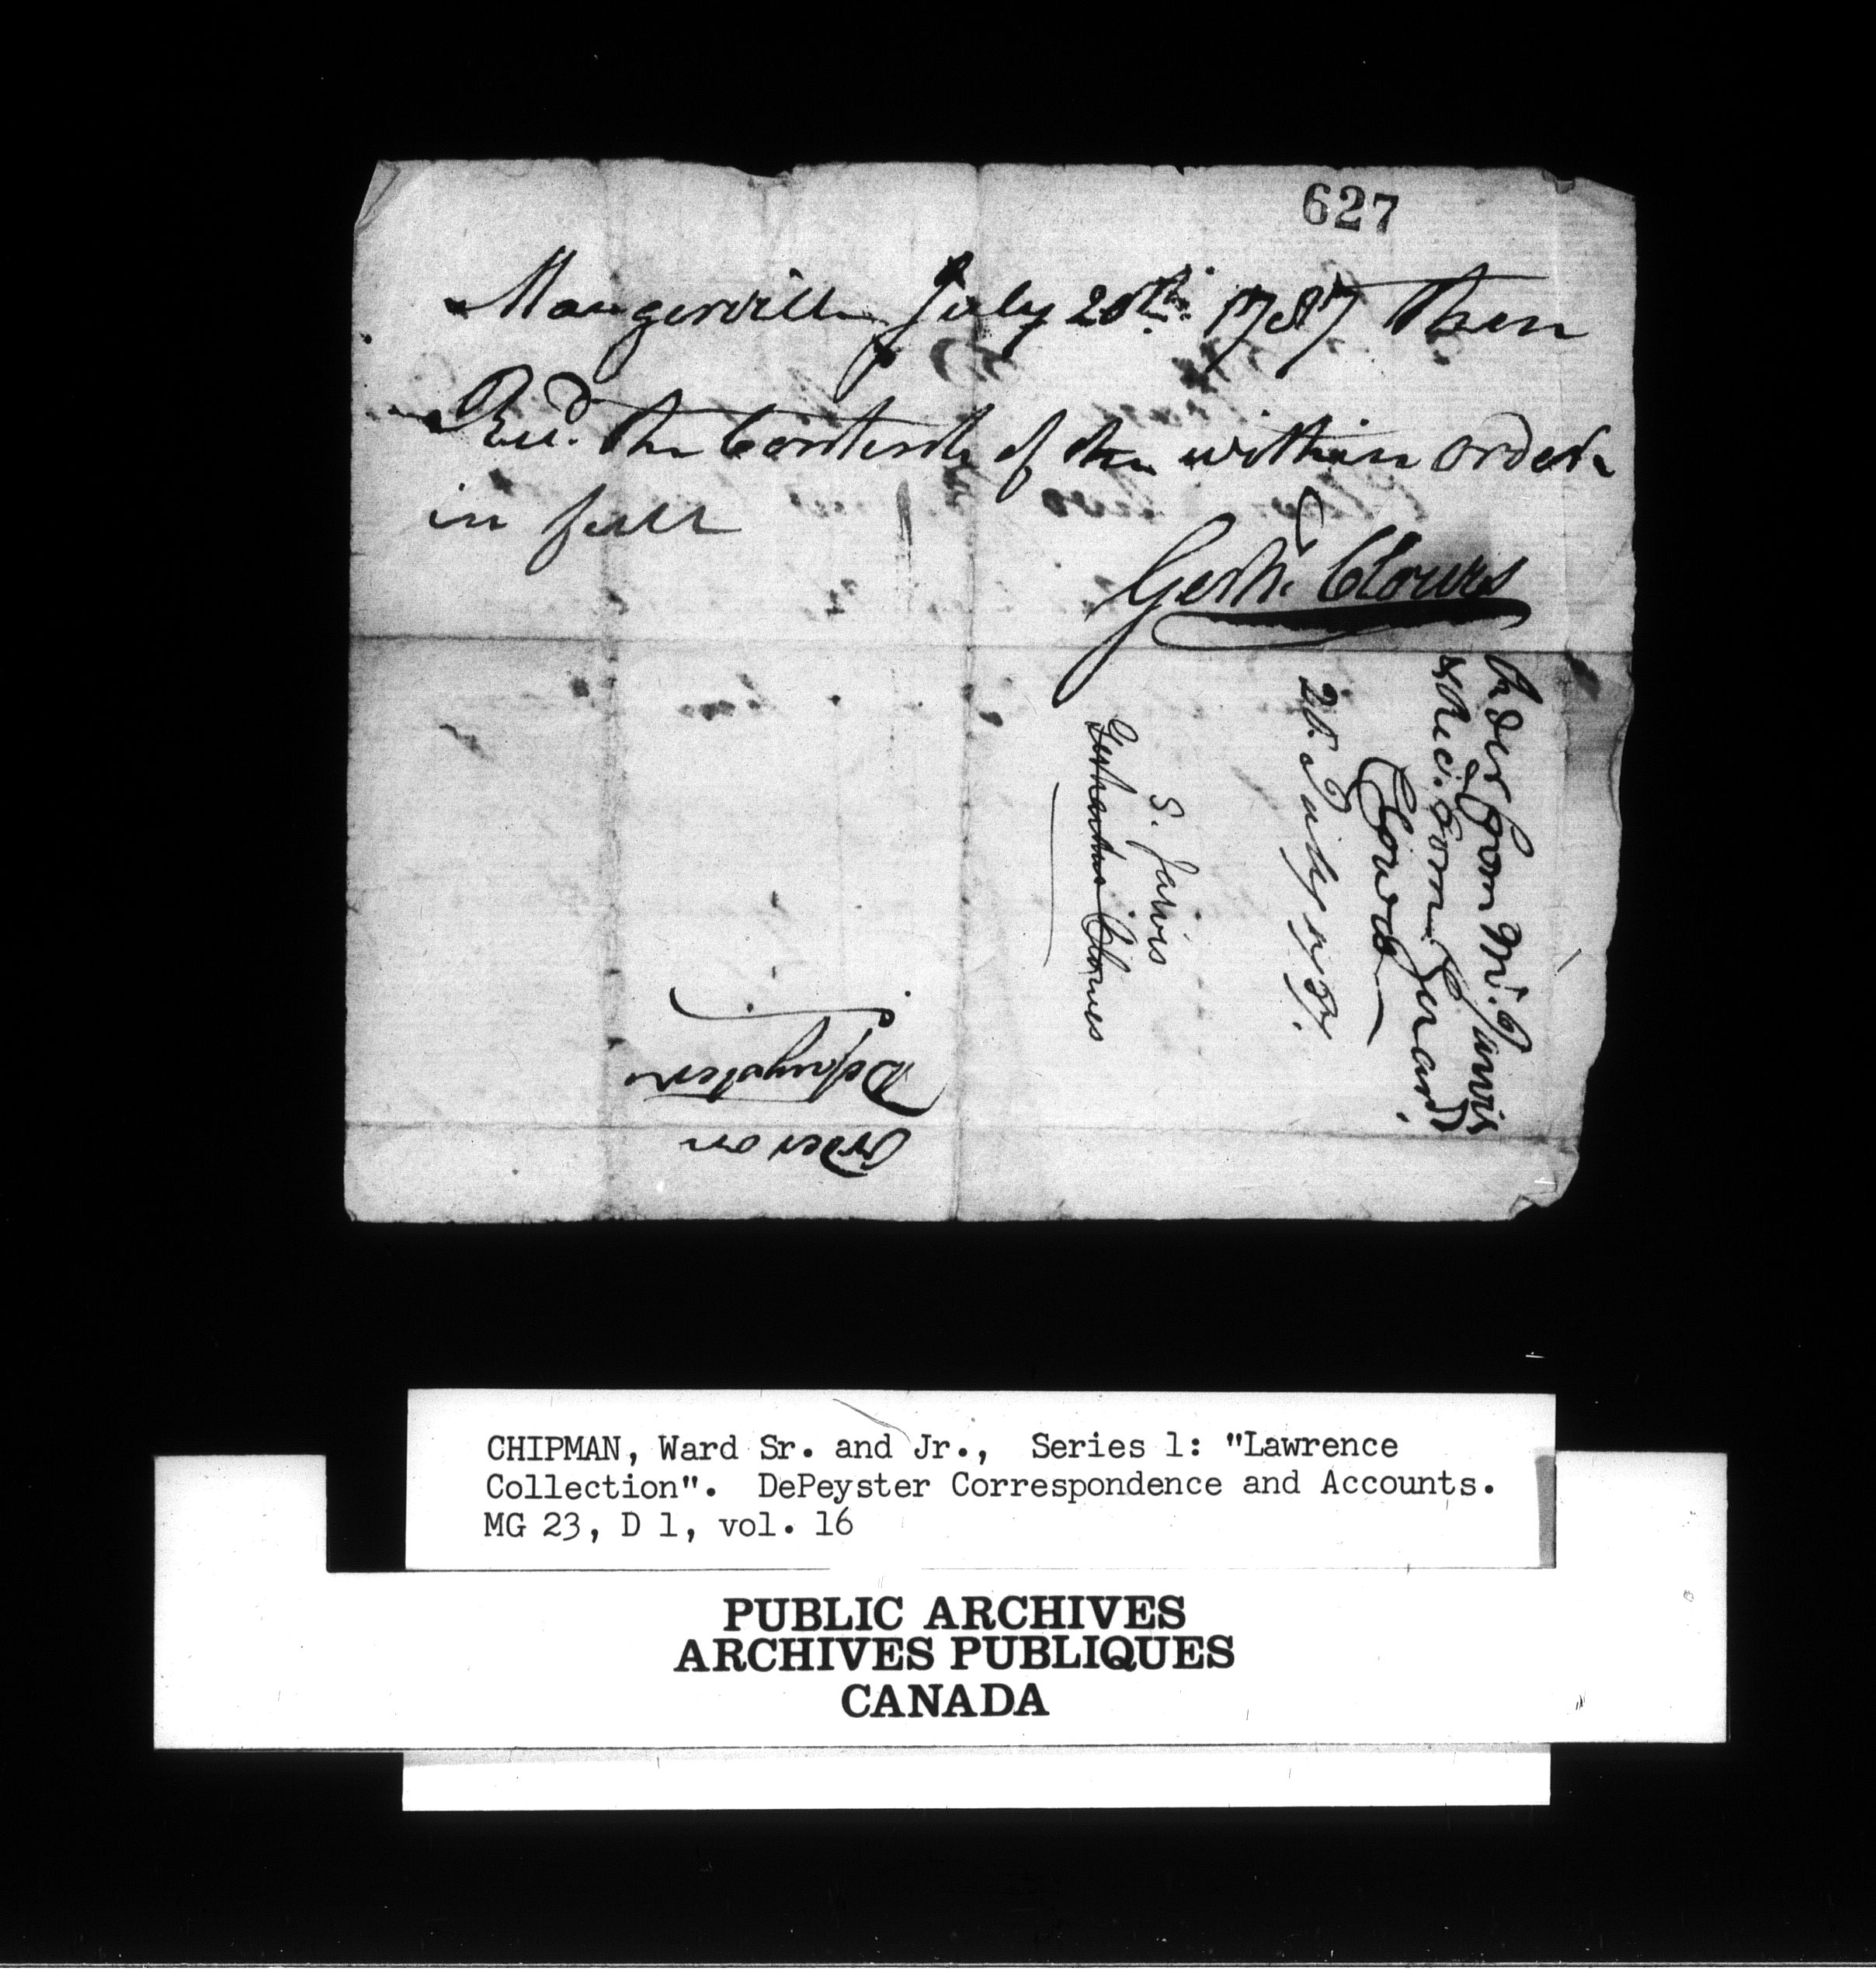 627
Maugerville July 20th. 1787 Then
Recd. the Contents of the within order
in full
Gerhs. Clowes
Order from Mr. Jarvis
& Rec. from Gerard
Clowes
20 July 1787.
S. Jarvis
Gerhardus Clowes
Order on
Depeyster
CHIPMAN, Ward Sr. and Jr., Series 1: "Lawrence
Collection". DePeyster Correspondence and Accounts.
MG 23, D 1, vol. 16
PUBLIC ARCHIVES
ARCHIVES PUBLIQUES
CANADA